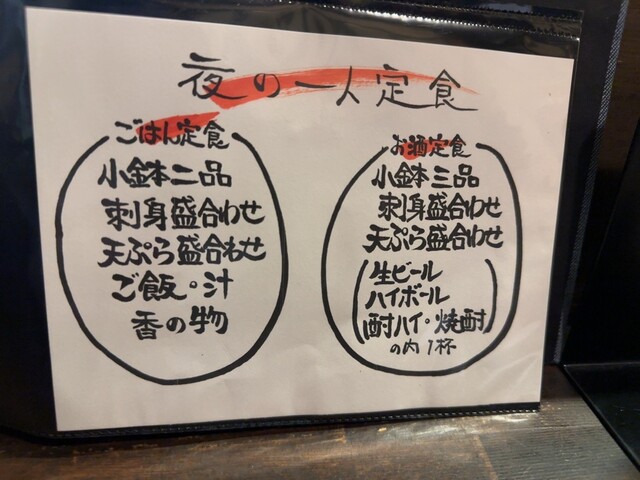 夜の一人定食
ごはん定食
小鉢二品
刺身盛合わせ
天ぷら盛合わせ
ご飯・汁
香の物
お酒定食
小鉢三品
刺身盛合わせ
天ぷら盛合わせ
生ビール
ハイボール
酎ハイ・焼酎
の内1杯